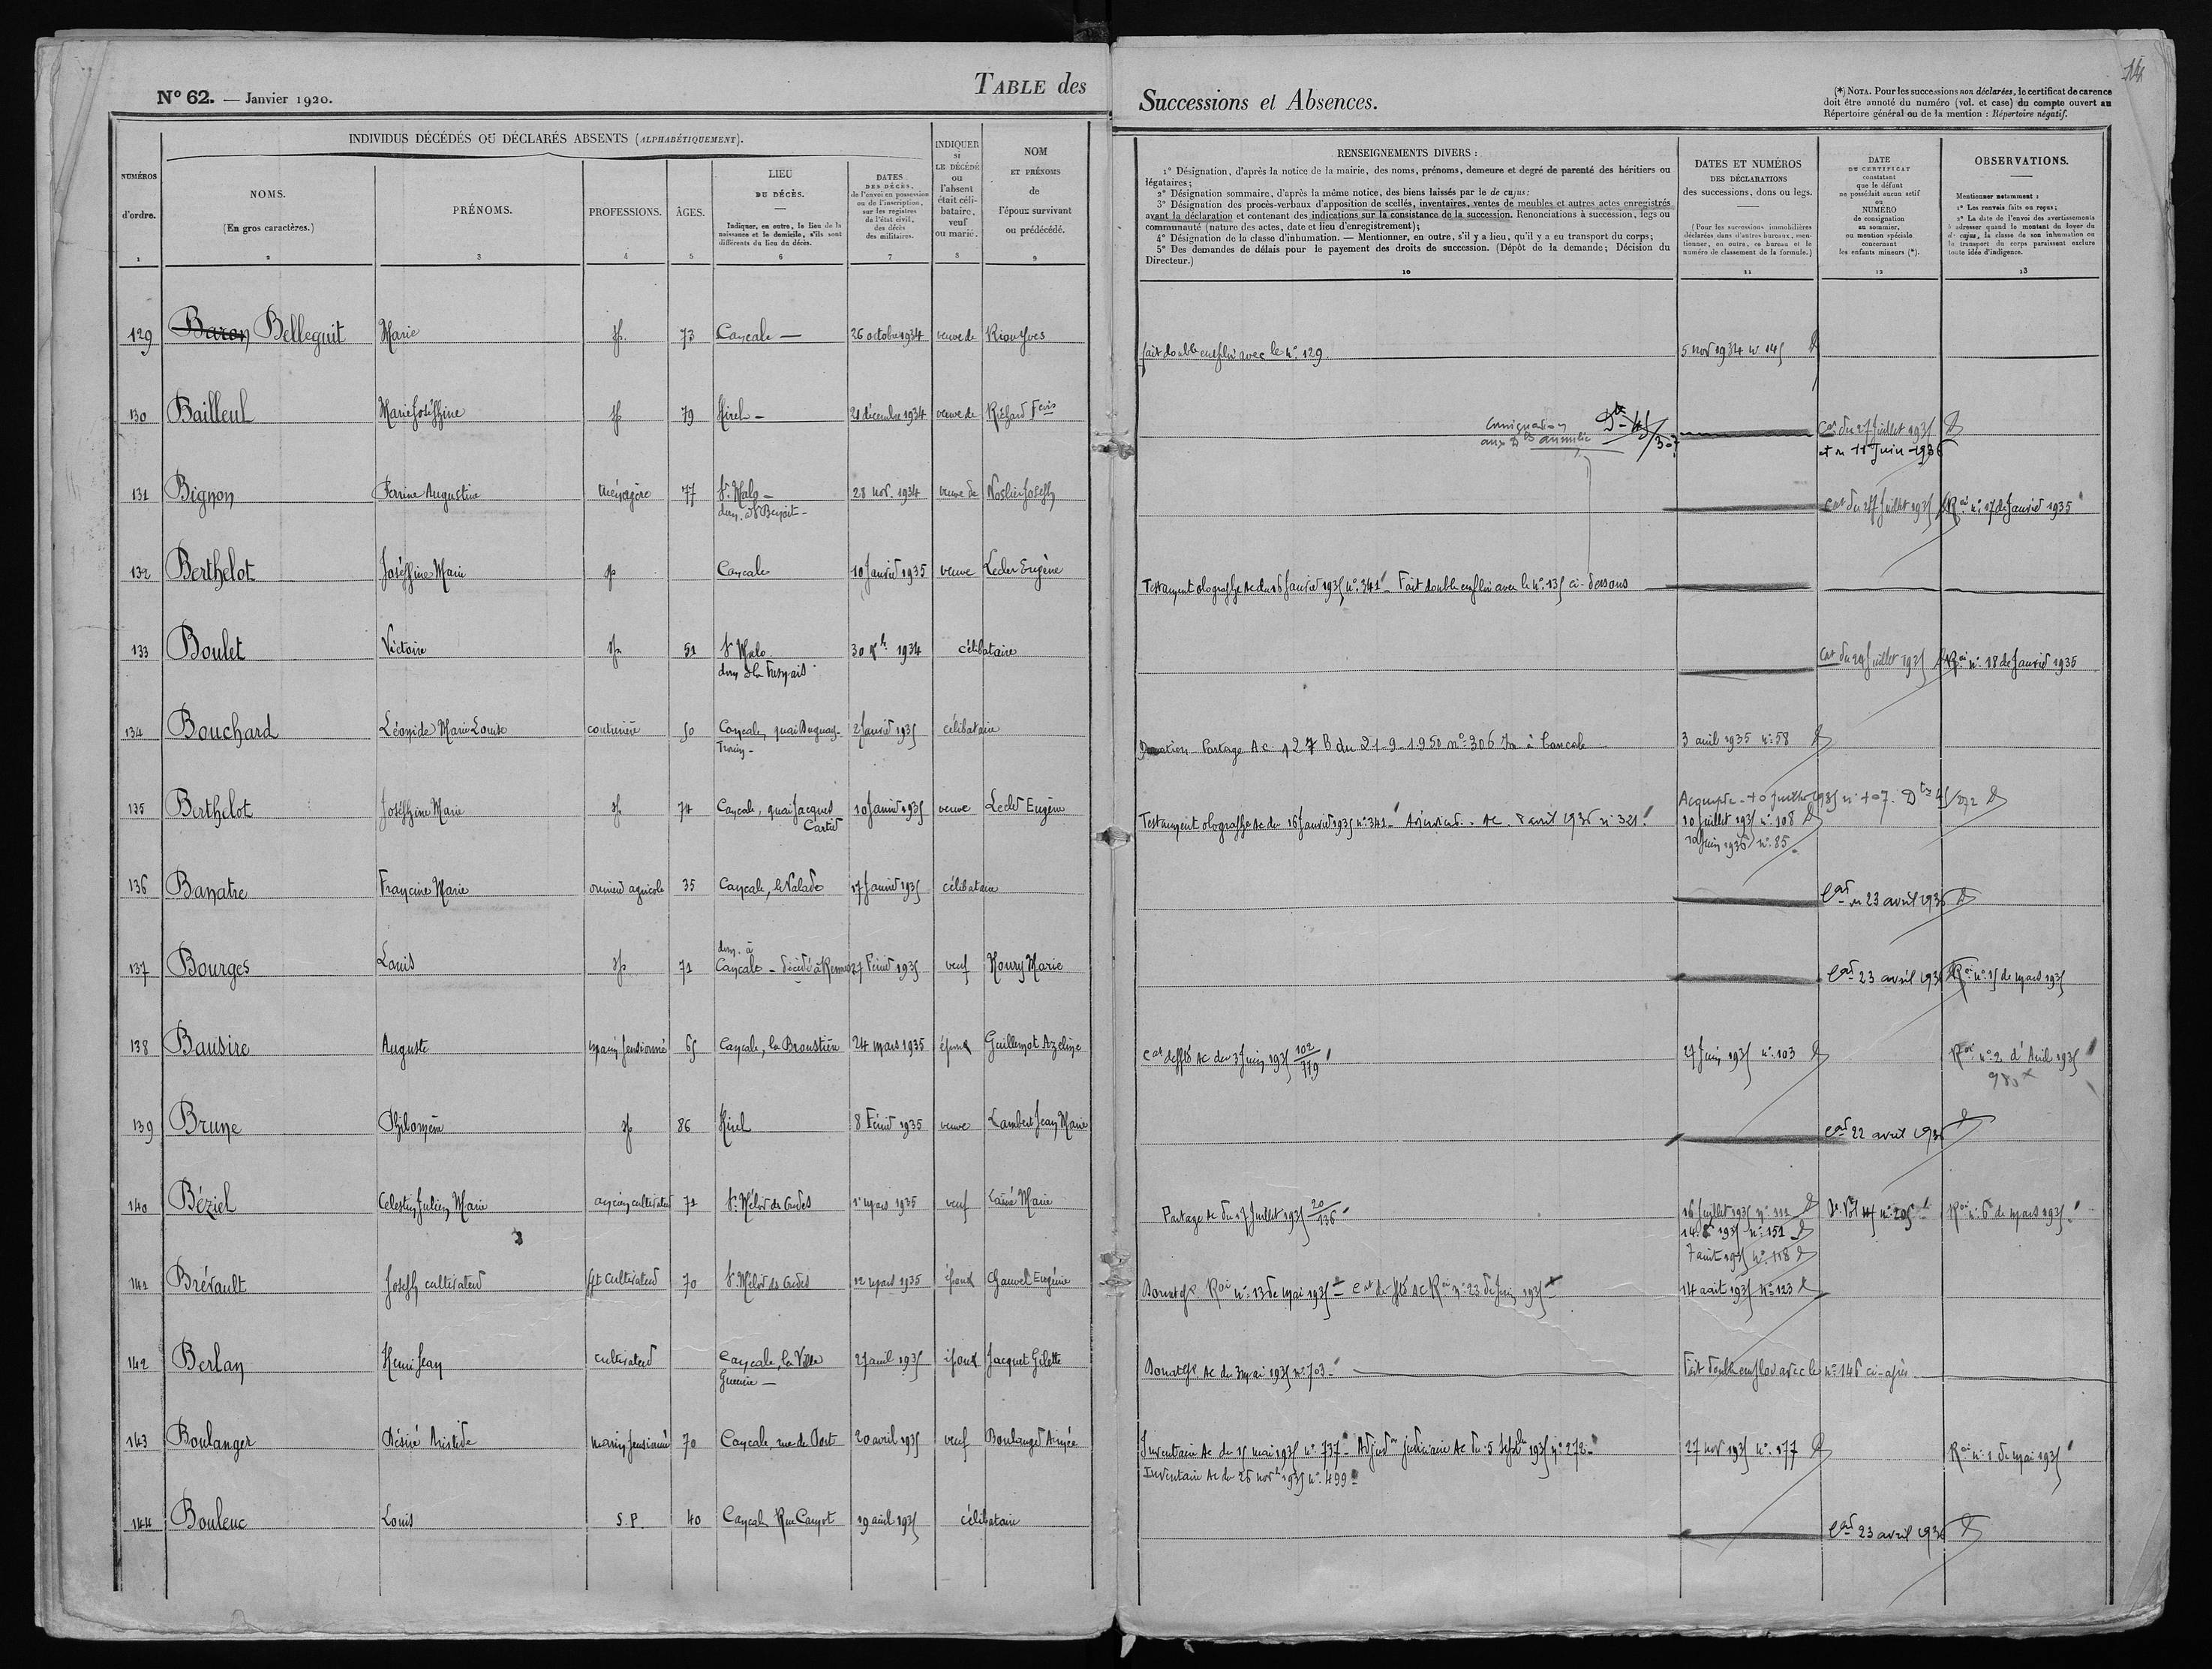 14
N° 62. — Janvier 1920.
TABLE des Successions et Absences.
(*) NOTA. Pour les successions non déclarées, le certificat de carence
doit être annoté du numéro (vol. et case) du compte ouvert au
Répertoire général ou de la mention : Répertoire négatif.
NUMÉROS
d'ordre.
1
INDIVIDUS DÉCÉDÉS OU DÉCLARÉS ABSENTS (ALPHABÉTIQUEMENT).
NOMS.
(En gros caractères.)
2
PRÉNOMS.
3
PROFESSIONS.
4
ÂGES.
5
LIEU
DU DÉCÈS.
Indiquer, en outre, le lieu de la
naissance et le domicile, s'ils sont
différents du lieu du décès.
6
DATES
DES DÉCÈS,
de l'envoi en possession
ou de l'inscription,
sur les registres
de l'état civil,
des décès
des militaires.
7
INDIQUER
si
LE DÉCÉDÉ
ou
l'absent
était céli-
bataire,
veuf
ou marié.
8
NOM
ET PRÉNOMS
de
l'époux survivant
ou prédécédé.
9
RENSEIGNEMENTS DIVERS :
1° Désignation, d'après la notice de la mairie, des noms, prénoms, demeure et degré de parenté des héritiers ou
légataires;
2° Désignation sommaire, d'après la même notice, des biens laissés par le de cujus;
3° Désignation des procès-verbaux d'apposition de scellés, inventaires, ventes de meubles et autres actes enregistrés
avant la déclaration et contenant des indications sur la consistance de la succession. Renonciations à succession, legs ou
communauté (nature des actes, date et lieu d'enregistrement);
4° Désignation de la classe d'inhumation. — Mentionner, en outre, s'il y a lieu, qu'il y a eu transport du corps;
5° Des demandes de délais pour le payement des droits de succession. (Dépôt de la demande; Décision du
Directeur.)
10
DATES ET NUMÉROS
DES DÉCLARATIONS
des successions, dons ou legs.
(Pour les successions immobilières
déclarées dans d'autres bureaux, men-
tionner, en outre, ce bureau et le
numéro de classement de la formule.)
11
DATE
DU CERTIFICAT
constatant
que le défunt
ne possédait aucun actif
ou
NUMÉRO
de consignation
au sommier,
ou mention spéciale
concernant
les enfants mineurs (*).
12
OBSERVATIONS.
Mentionner notamment :
1° Les renvois faits ou reçus;
2° La date de l'envoi des avertissements
à adresser quand le montant du loyer du
de cujus, la classe de son inhumation ou
le transport du corps paraissent exclure
toute idée d'indigence.
13
129 Baron Belleguit Marie sp. 73 Cancale — 26 octobre 1934 veuve de Riou Yves
fait double emploi avec le n° 129 5 nov 1934 n° 145
130 Bailleul Marie Joséphine sp 79 Hirel — 21 décembre 1934 veuve de Richard Fcois
Consignation
aux Dts annulée 45/307 Cat du 27 Juillet 1935
et du 11 Juin 1936
131 Bignon Perrine Augustine ménagère 77 St Malo — 28 nov. 1934 veuve de Joseph
dem. à St Benoit — Cat du 27 Juillet 1935 Roi n° 17 de Janvier 1935
132 Berthelot Joséphine Marie sp Cancale 10 Janvier 1935 veuve Lecler Eugène
Testament olographe Ac du 16 Janvier 1935 n° 341 — Fait double emploi avec le n° 135 ci-dessous
133 Boulet Victoire sp 51 St Malo 30 Xbre 1934 célibataire
dem à la Fresnais Cat du 29 Juillet 1935 Roi n° 18 de Janvier 1935
134 Bouchard Léonide Marie Louise couturière 50 Cancale, quai Duguay- 2 Janvier 1935 célibataire
Trouin —
Donation Partage Ac. 127 B du 21-9-1950 n° 306 à Cancale 3 avril 1935 n° 58
135 Berthelot Joséphine Marie sp 74 Cancale, quai Jacques 10 Janvier 1935 veuve Lecler Eugène
Cartier
Acompte 10 Juillet 1935 n° 107. Dts 45/272
Testament olographe Ac du 16 Janvier 1935 n° 341 — Ac. 8 avril 1936 n° 321 10 Juillet 1935 n° 108
10 Juin 1936 n° 85
136 Banatre Francine Marie ouvrier agricole 35 Cancale, le Valade 17 Janvier 1935 célibataire
Cat du 23 avril 1936
137 Bourges Louis sp 71 dem. à
Cancale — décédé à Rennes 27 Février 1935 veuf Houry Marie
Cat 23 avril 1936 Roi n° 15 de mars 1935
138 Bausire Auguste marin pensionné 65 Cancale, la Broustière 24 mars 1935 époux Guillemot Azeline
Cat de ppté AC du 3 Juin 1935 102/779 27 Juin 1935 n° 103 Roi n° 2 d'Avril 1935
139 Brune Philomène sp 86 Hirel 8 Février 1935 veuve Lambert Jean Marie
Cat 22 avril 1936
140 Béziel Celestin Julien Marie ancien cultivateur 71 St Méloir des Ondes 1er mars 1935 veuf Lainé Marie
Partage Ac du 17 Juillet 1935 20/136 16 Juillet 1935 n° 111 n° 205 Roi n° 6 de mars 1935
14.8.1935 n° 151
7 août 1935 n° 118
141 Brévault Joseph cultivateur cultivateur 70 St Méloir des Ondes 12 mars 1935 époux Chauvel Eugénie
Roi n° 13 de mai 1935 — Cat de ppté AC Roi n° 23 de Juin 1935 14 août 1935 n° 123
142 Berlan Henri Jean cultivateur Cancale, la Ville 27 avril 1935 époux Jacquet Gilette
Guerin —
Ac du 3 mai 1935 n° 703 — Fait double emploi avec le n° 146 ci-après
143 Boulanger Désiré Aristide marin pensionné 70 Cancale, rue du Port 20 avril 1935 veuf Boulanger Aimée
Inventaire Ac du 15 mai 1935 n° 737 — Adjudon judiciaire Ac du 5 Septbre 1935 n° 272 — 27 nov 1935 n° 177 Roi n° 1 de mai 1935
Inventaire Ac du 26 novbre 1935 n° 499
144 Bouleuc Louis S.P. 40 Cancale Rue Carnot 19 avril 1935 célibataire
Cat 23 avril 1936